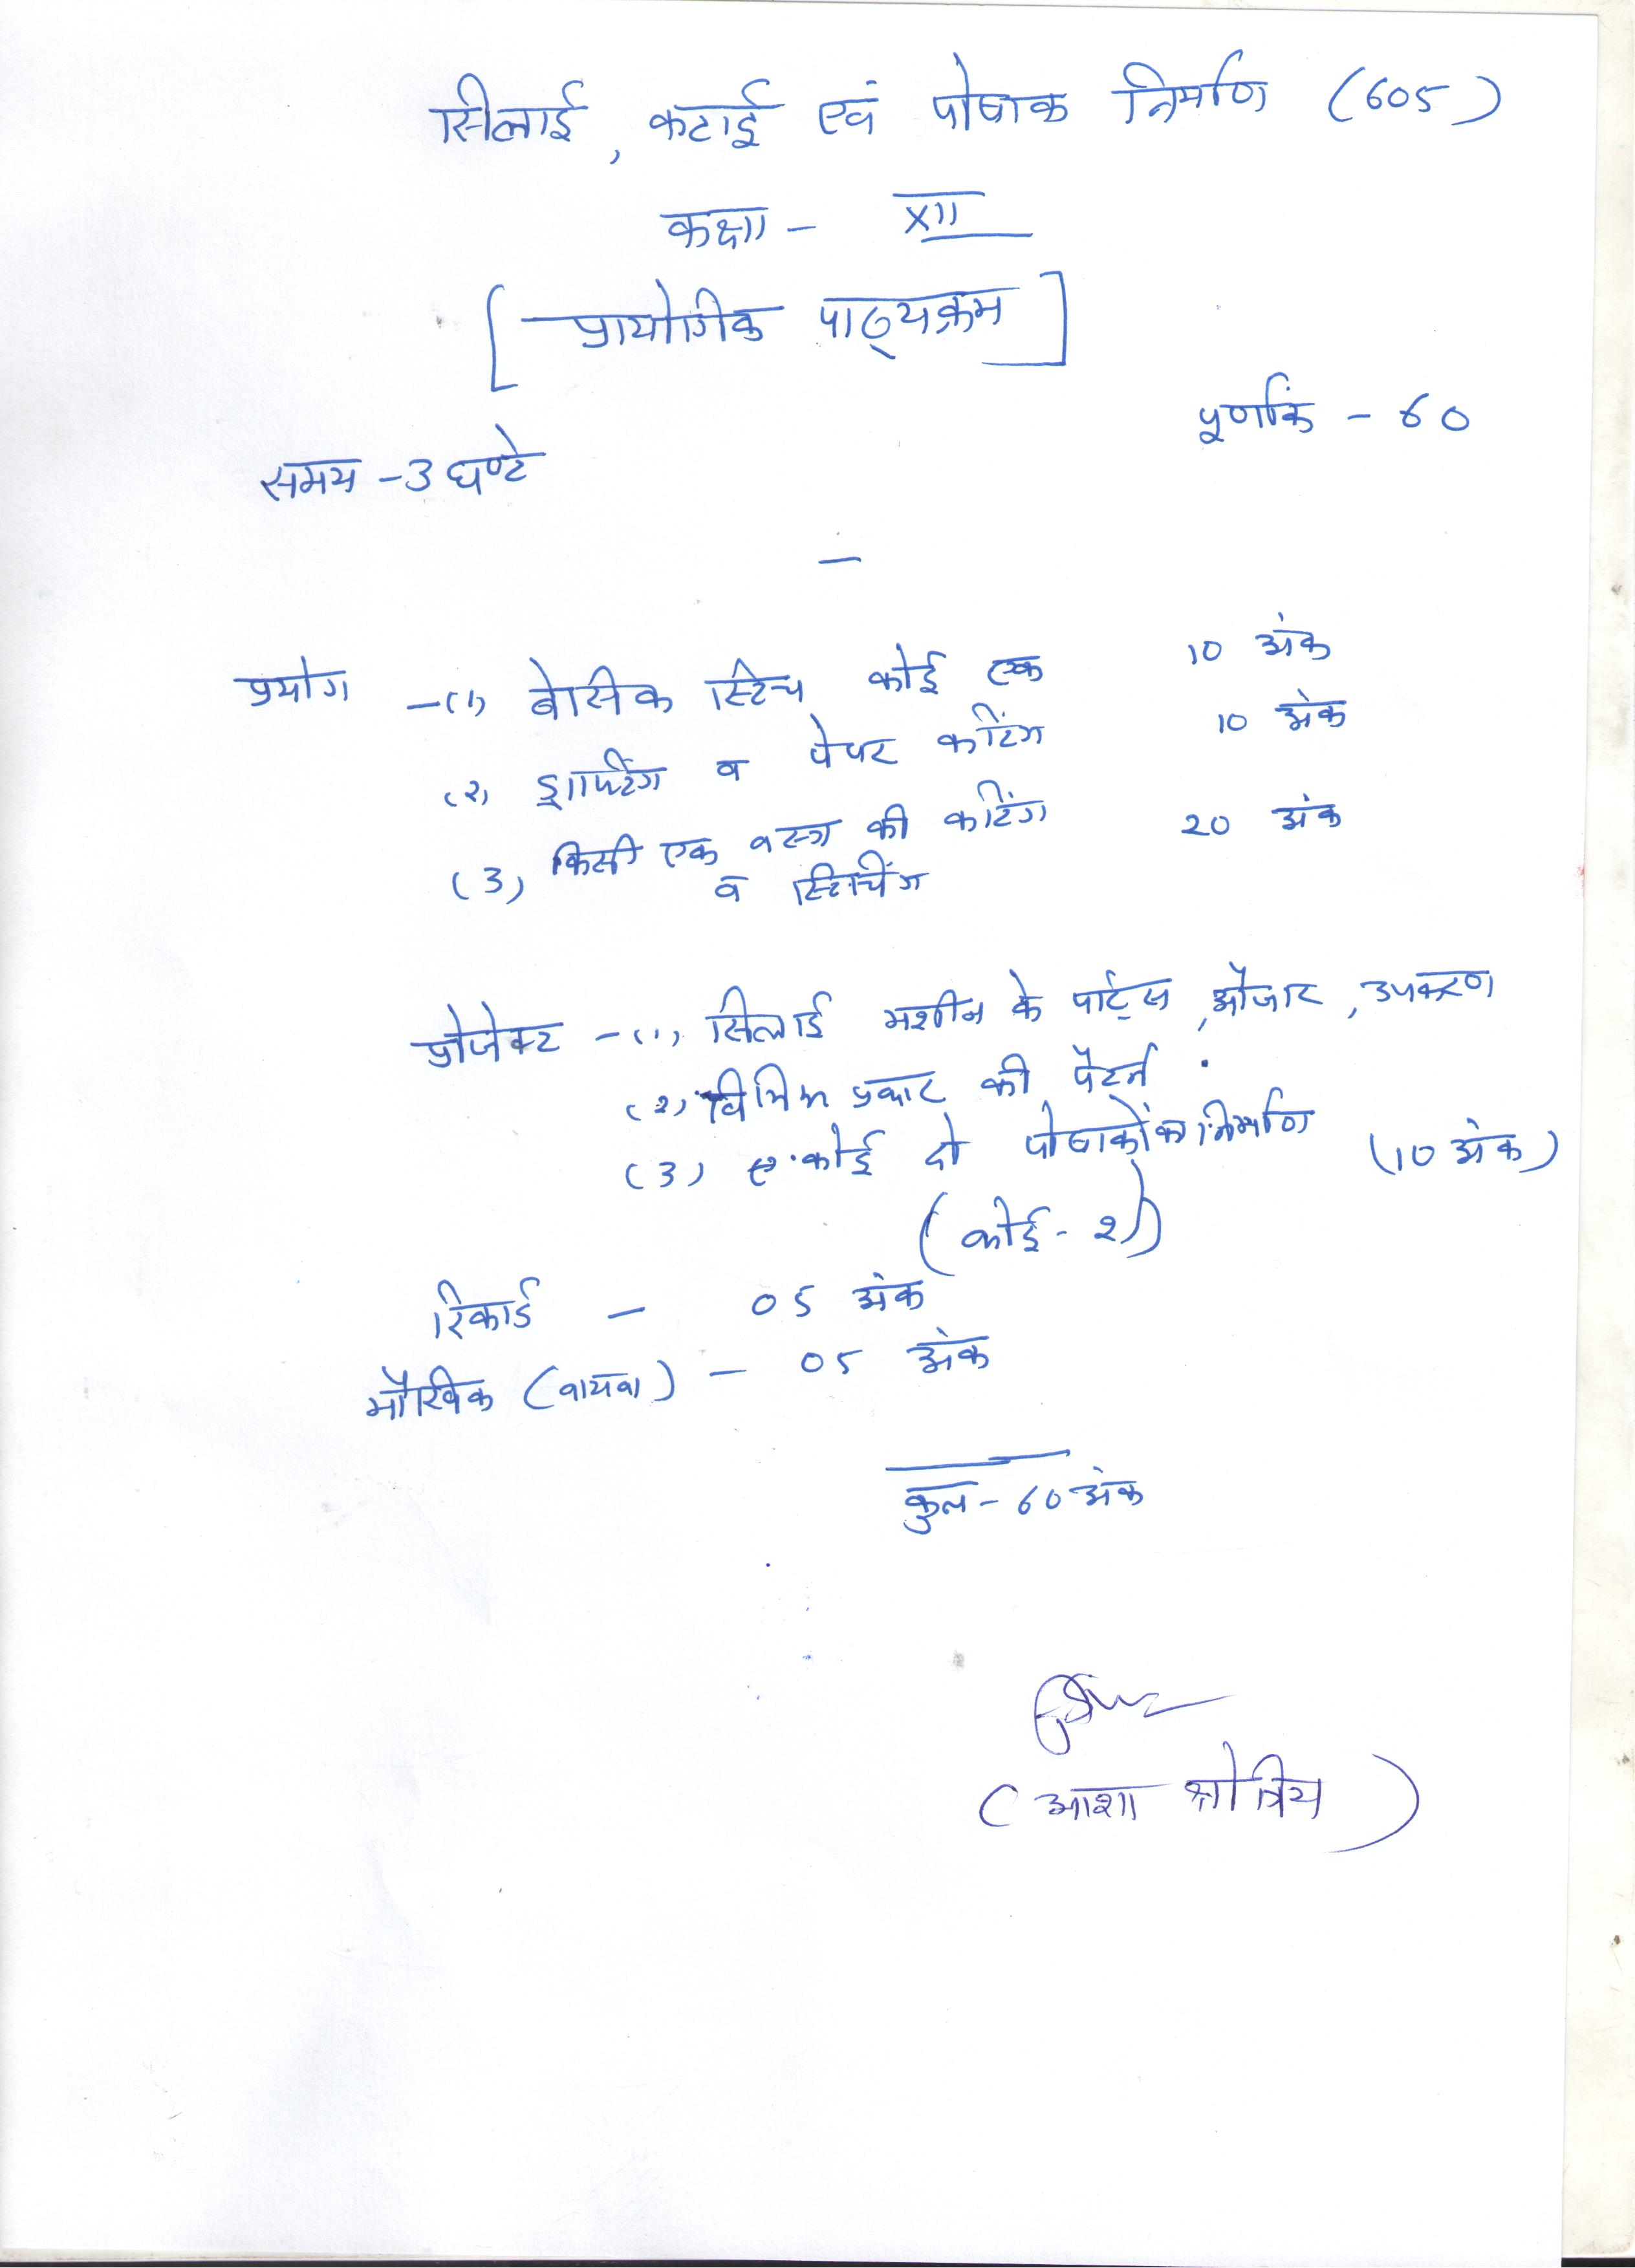 सिलाई, कटाई एवं पोषाक निर्माण (605)
कक्षा - XII
[प्रायोगिक पाठ्यक्रम]
पूर्णांक - 60
समय - 3 घण्टे
प्रयोग - (1) बेसिक स्टिच कोई एक 10 अंक
(२) ड्राफ्टिंग व पेपर कटिंग 10 अंक
(3) किसी एक वस्त्र की कटिंग 20 अंक
व स्टिचिंग
प्रोजेक्ट - (1) सिलाई मशीन के पार्ट्स, औजार, उपकरण
(२) विभिन्न प्रकार की पैटर्न
(3) कोई दो पोषाकों का निर्माण (10 अंक)
(कोई - २)
रिकार्ड - 05 अंक
मौखिक (वायवा) - 05 अंक
कुल - 60 अंक
(आशा क्षोत्रिय)